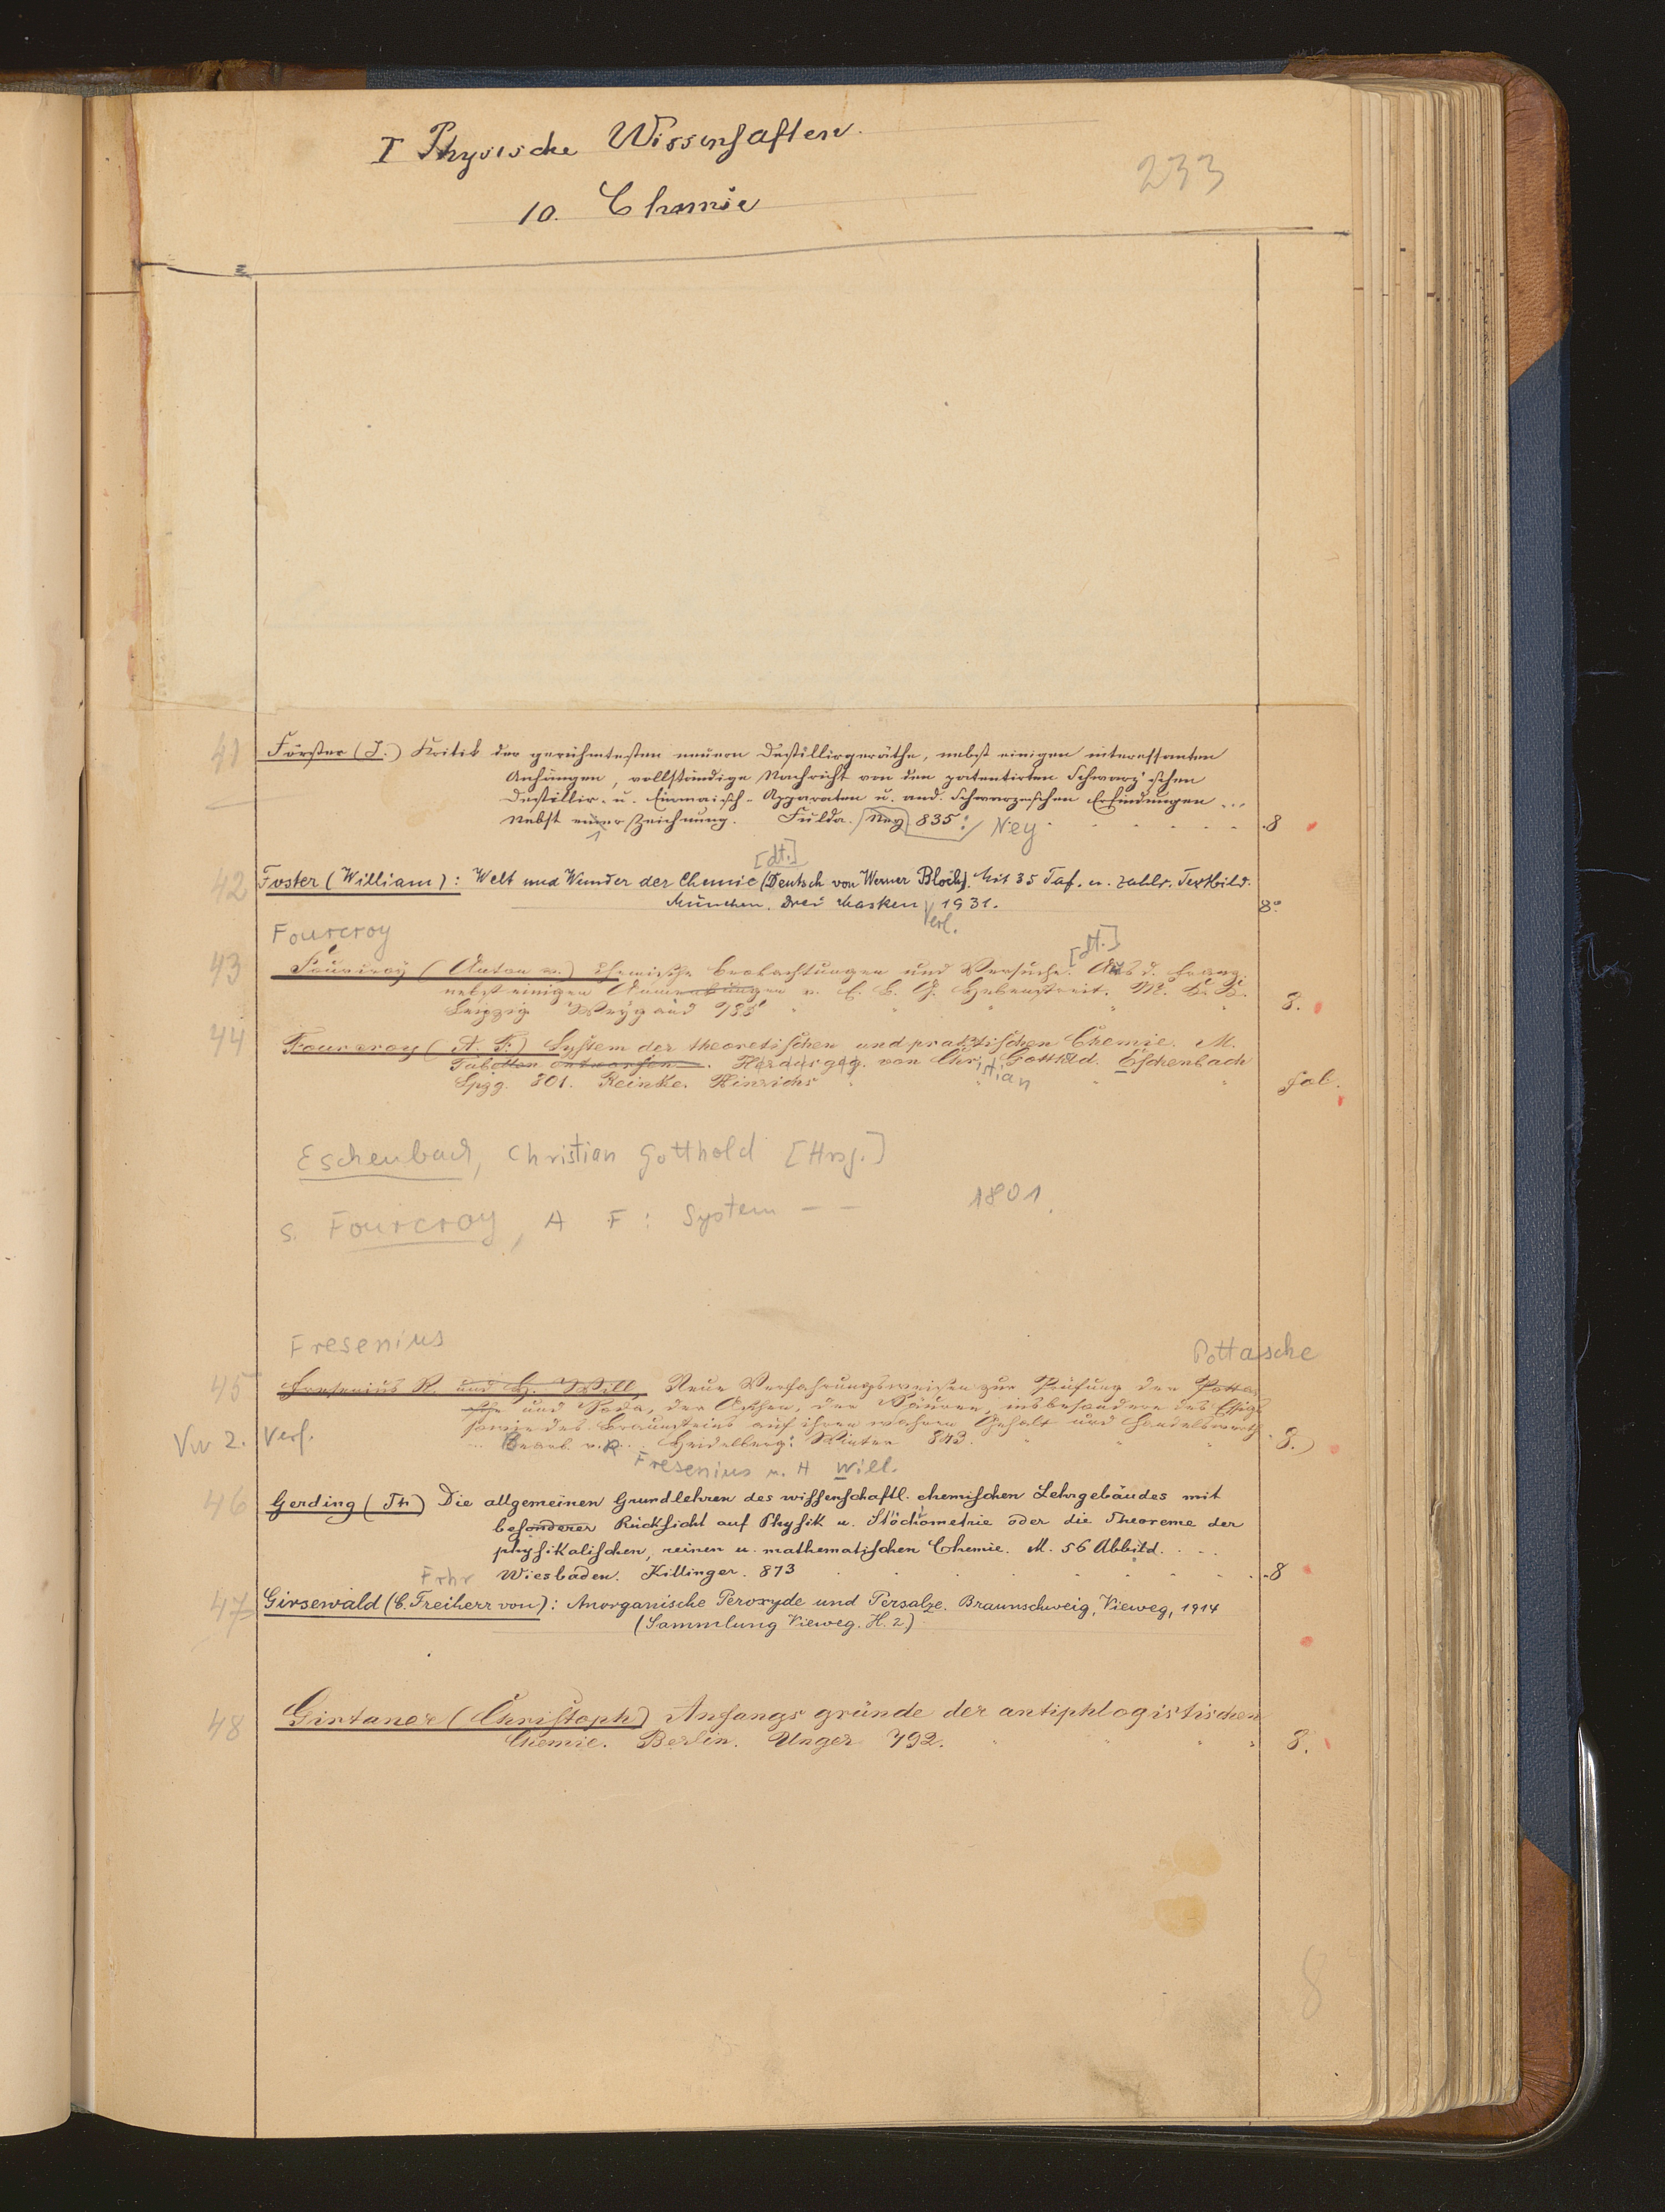 I Physische Wissenschaften.
233
10. Chemie
41 Förster (J.) Kritik der gerühmtesten neuern Destillirgeräthe, nebst einigen interessanten
Anhängen, vollständige Nachricht von den patentirten Schwarz'schen
Destillir- u. Einmaisch-Apparaten u. and. Schwarzschen Erfindungen ...
Nebst einer Zeichnung. Fulda. Ney 835. Ney 8
[dt.]
42 Foster (William): Welt und Wunder der Chemie (Deutsch von Werner Bloch). Mit 35 Taf. u. zahlr. Textbild.
München. Drei Masken Verl. 1931. 8°
Fourcroy
[dt.]
43 Fourcroy (Anton v.) chemische Beobachtungen und Versuche. Aus d. Franz.
nebst einigen Anmerkungen v. E. B. G. Hebenstreit. M. K. K.
Leipzig Weygand 785 8.
44 Fourcroy (A. F.) System der theoretischen und praktischen Chemie. M.
Tabellen entworfen. Herausgeg. von Christian Gotthold. Eschenbach
Lpzg. 801. Reinke. Hinrichs fol.
Eschenbach, Christian Gotthold [Hrsg.]
s. Fourcroy, A F: System - - 1801.
Fresenius Pottasche
45 Fresenius R. und H. Will, Neue Verfahrungsweisen zur Prüfung der Potta-
sche und Soda, der Aschen, der Säuren, insbesondere des Essigs
sowie des Braunsteins auf ihren wahren Gehalt und Handelswerth
Vw 2. Verf. Bearb. v. R. Heidelberg: Winter 843. 8.
Fresenius u. H Will.
46 Gerding (Th) Die allgemeinen Grundlehren des wissenschaftl. chemischen Lehrgebäudes mit
besonderer Rücksicht auf Physik u. Stöchiometrie oder die Theoreme der
physikalischen, reinen u. mathematischen Chemie. M. 56 Abbild.
Wiesbaden. Killinger. 873 8
Frhr
47 Girsewald (C. Freiherr von): Anorganische Peroxyde und Persalze. Braunschweig, Vieweg, 1914
(Sammlung Vieweg. H. 2)
48 Girtaner (Christoph) Anfangs gründe der antiphlogistischen
Chemie. Berlin. Unger 792. 8.
8